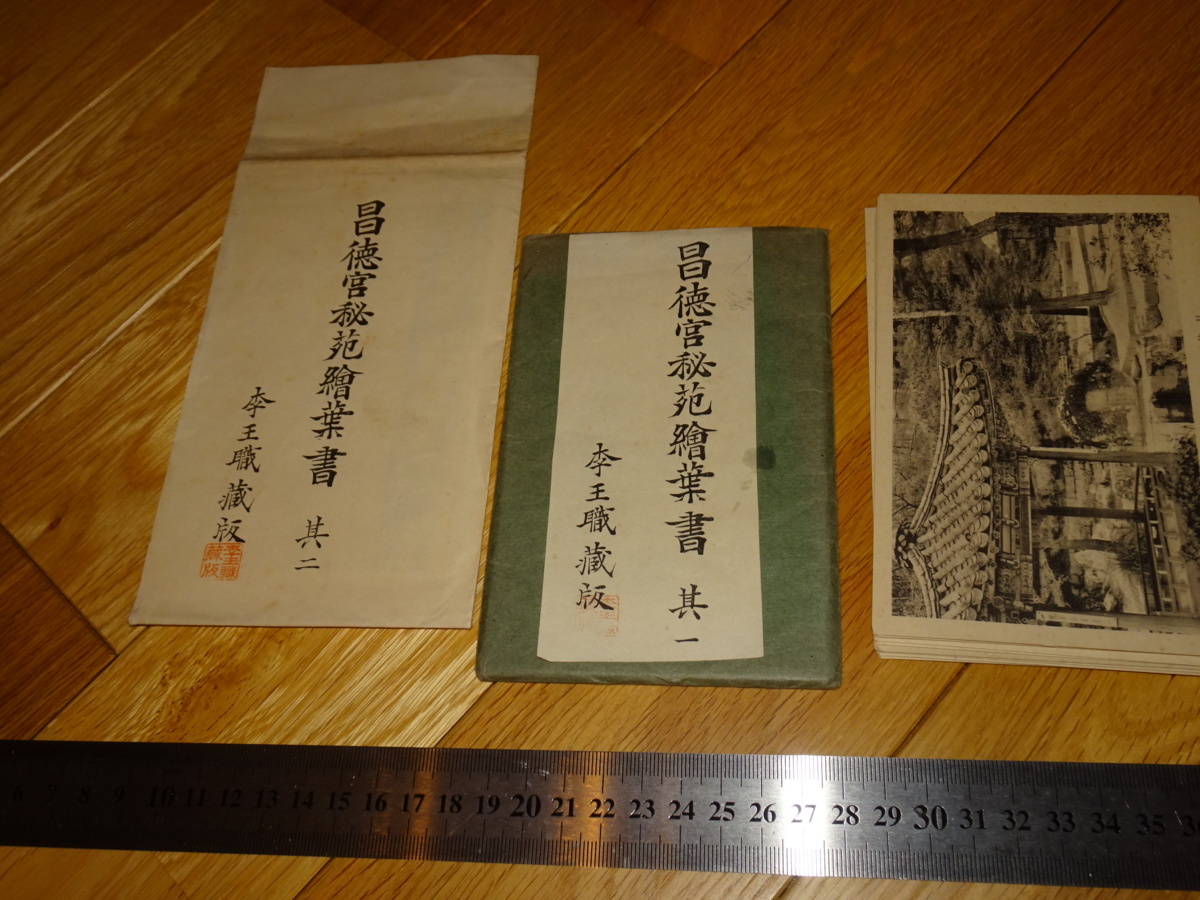 昌德宮秘苑繪葉書 其二
李王職藏版
李王職藏版
昌德宮秘苑繪葉書 其一
李王職藏版
6 7 8 9 10 11 12 13 14 15 16 17 18 19 20 21 22 23 24 25 26 27 28 29 30 31 32 33 34 35